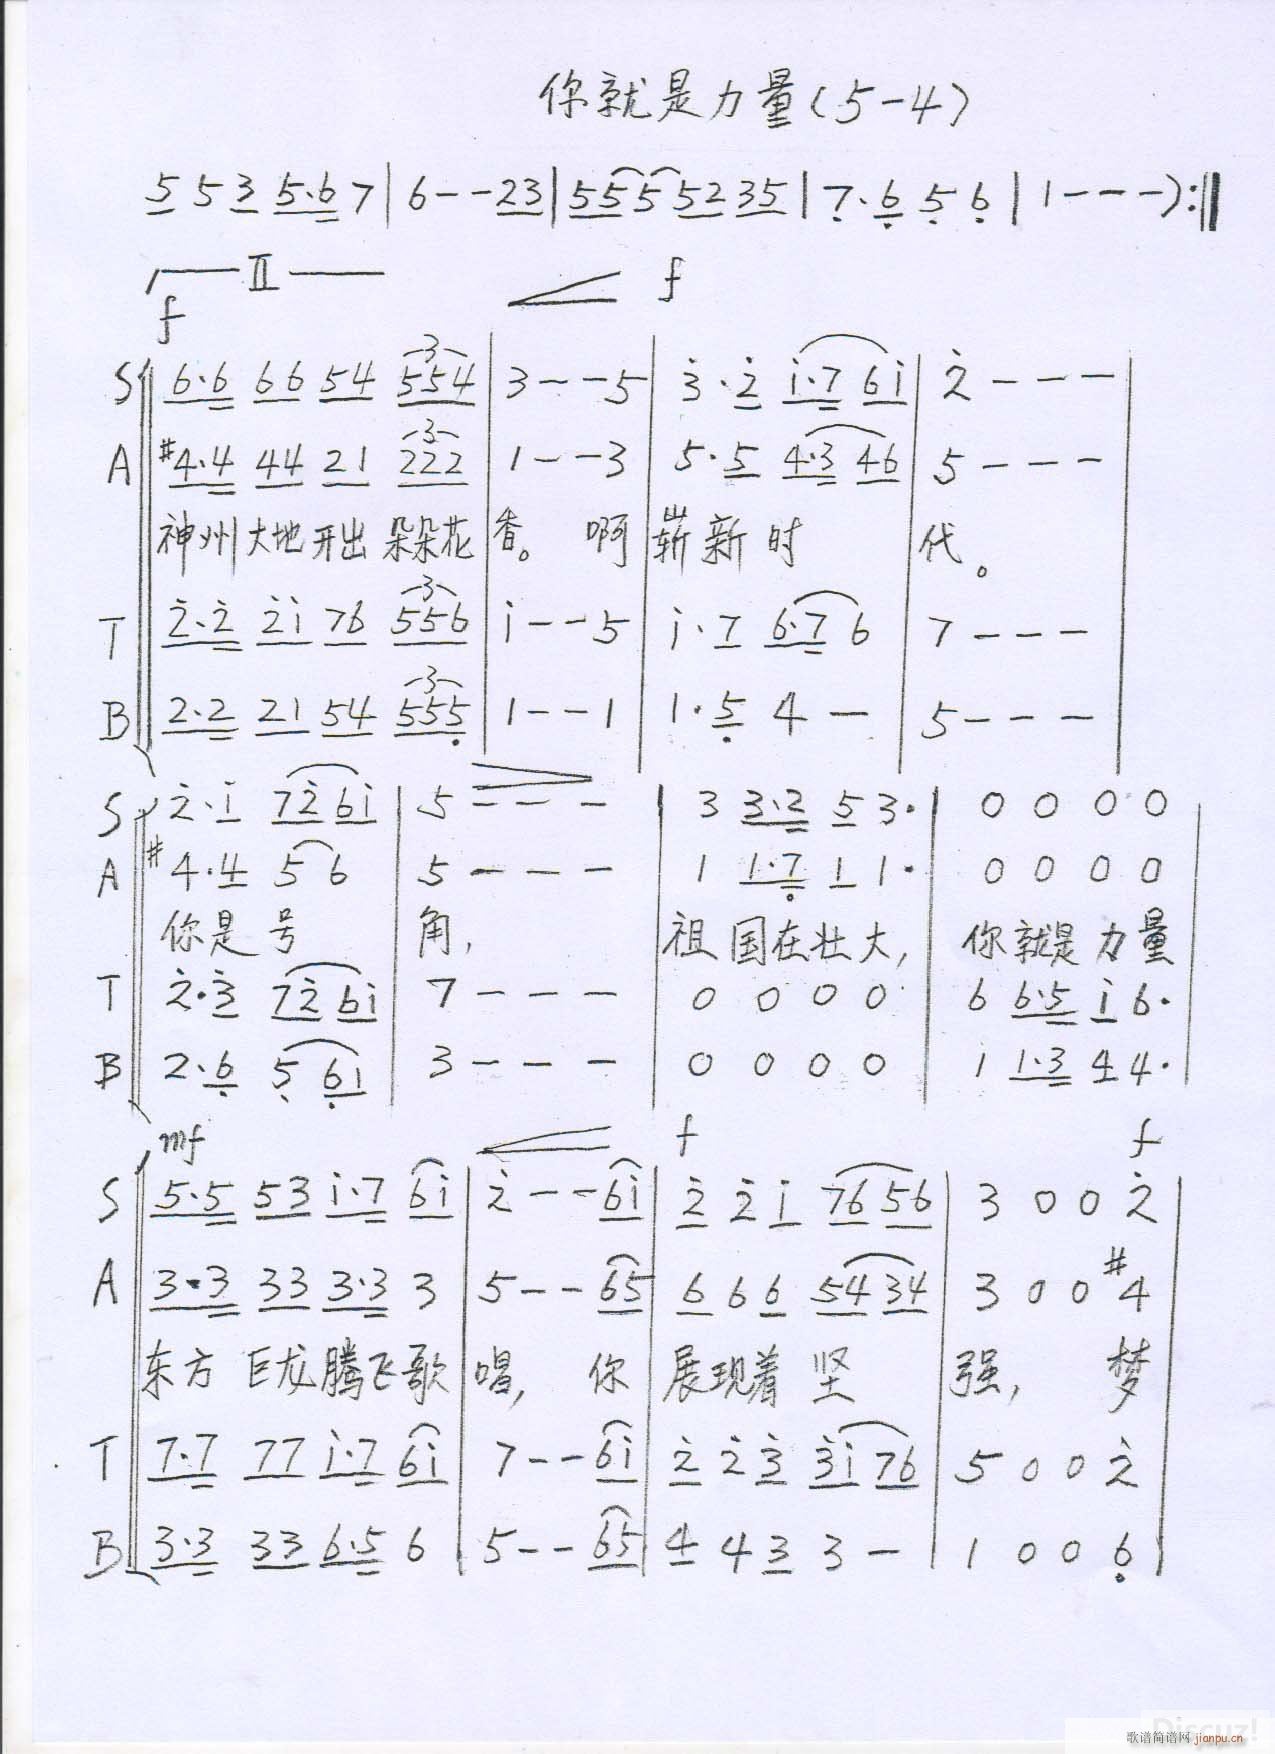 你就是力量(5-4)
5 5 3 5·6 7 | 6 - - 23 | 55 5 52 35 | 7·6 5 6 | 1 - - -) :||
II
f f
S 6·6 66 54 554 | 3 - - 5 | 3·2 1·7 61 | 2 - - - |
3
A #4·4 44 21 222 | 1 - - 3 | 5·5 4·3 46 | 5 - - - |
神州大地开出朵朵花香。啊崭新时代。
3
T 2·2 21 76 556 | 1 - - 5 | 1·7 6·7 6 | 7 - - - |
3
B 2·2 21 54 555 | 1 - - 1 | 1·5 4 - | 5 - - - |
S 2·1 72 61 | 5 - - - | 3 3·2 5 3· | 0 0 0 0 |
A #4·4 5 6 | 5 - - - | 1 1·7 1 1· | 0 0 0 0 |
你是号角, 祖国在壮大, 你就是力量
T 2·3 72 61 | 7 - - - | 0 0 0 0 | 6 6·5 1 6· |
B 2·6 5 61 | 3 - - - | 0 0 0 0 | 1 1·3 4 4· |
mf f f
S 5·5 53 1·7 61 | 2 - - 61 | 2 2 1 76 56 | 3 0 0 2 |
A 3·3 33 3·3 3 | 5 - - 65 | 6 6 6 54 34 | 3 0 0 #4 |
东方巨龙腾飞歌唱, 你展现着坚强, 梦
T 7·7 77 1·7 61 | 7 - - 61 | 2 2 3 31 76 | 5 0 0 2 |
B 3·3 33 6·5 6 | 5 - - 65 | 4 4 3 3 - | 1 0 0 6 |
Discuz!
歌谱简谱网 jianpu.cn